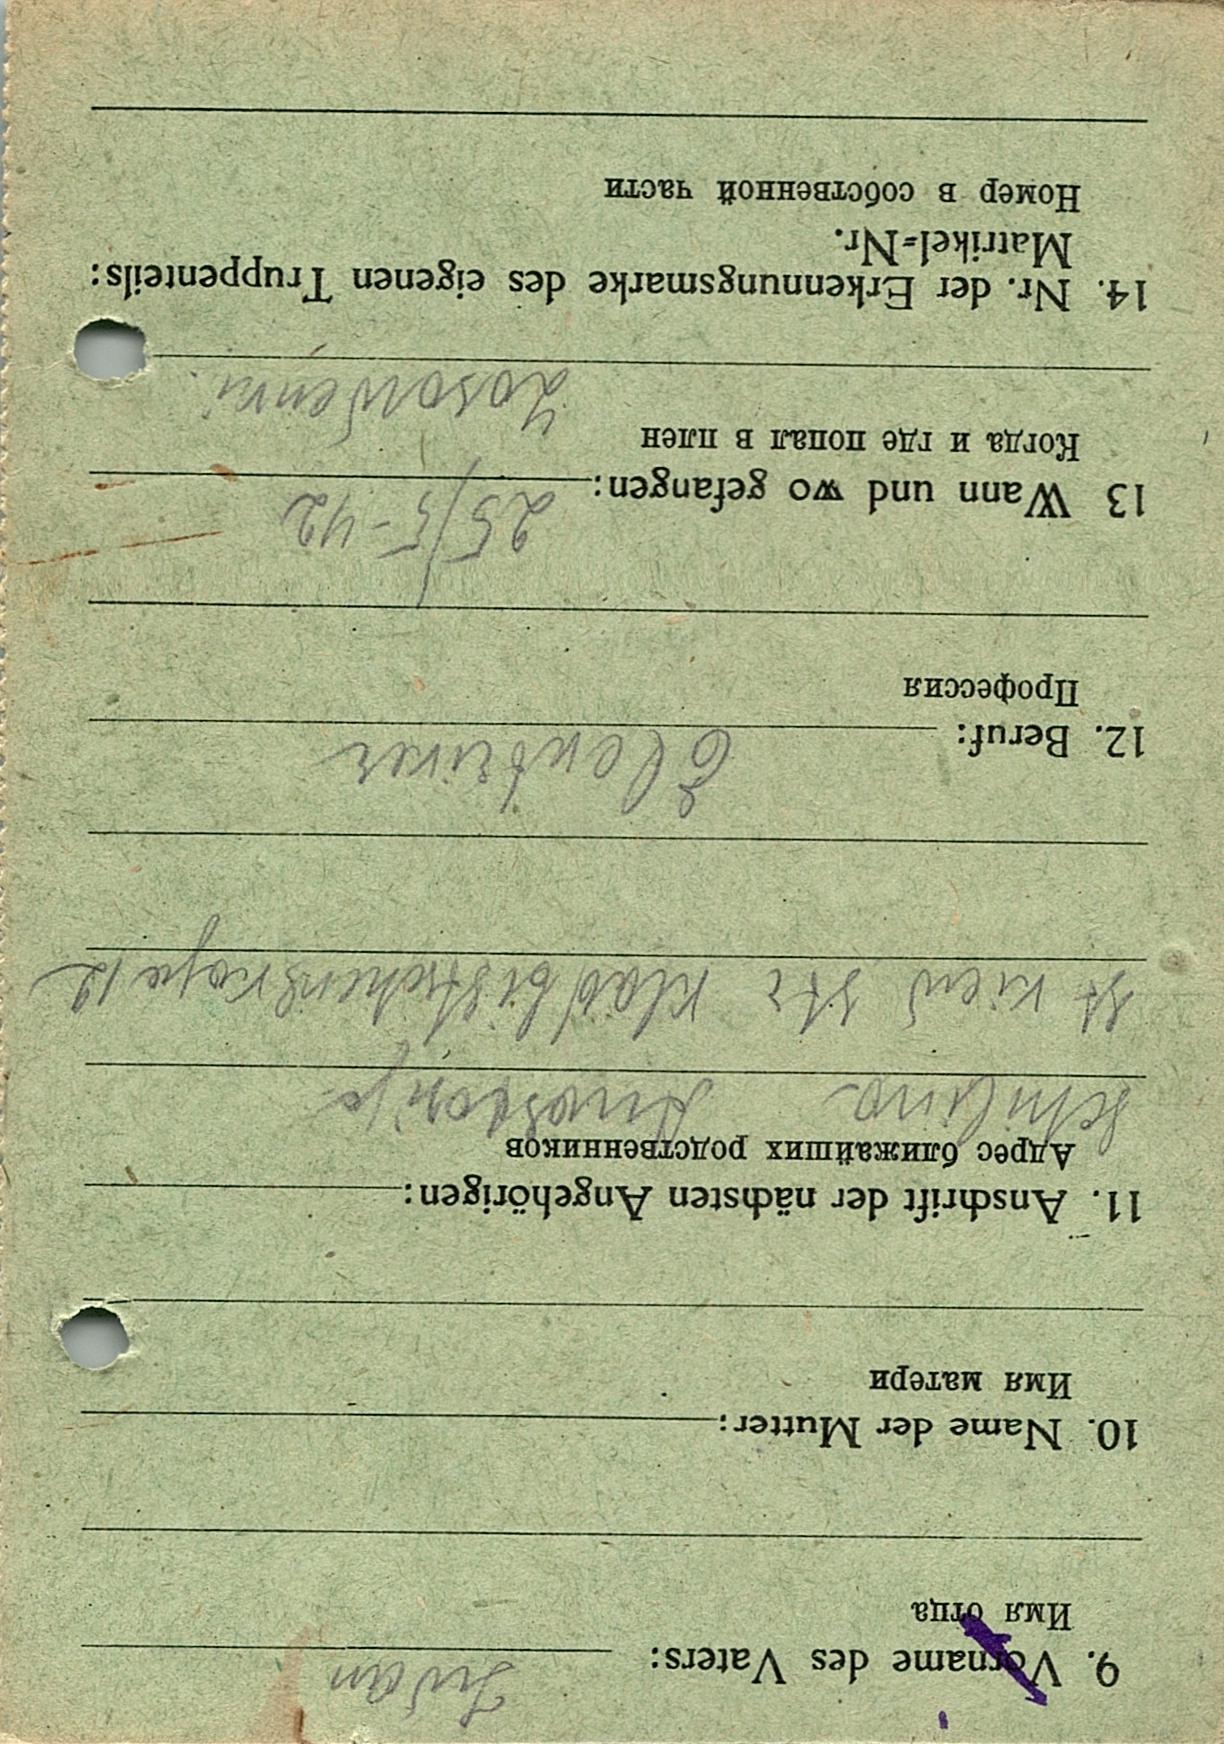 9. Vorname des Vaters: Iwan
Имя отца
10. Name der Mutter:
Имя матери
11. Anschrift der nächsten Angehörigen:
Адрес ближайших родственников
St Kiew Str
12. Beruf: Elektriker
Профессия
13 Wann und wo gefangen: 25/5-42
Когда и где попал в плен
Losowenki.
14. Nr. der Erkennungsmarke des eigenen Truppenteils:
Matrikel-Nr.
Номер в собственной части